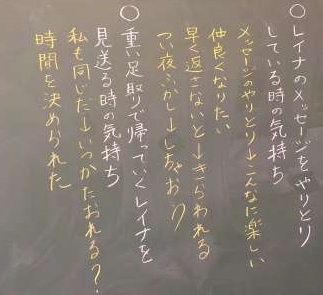 ○レイナのメッセージをやりとり
している時の気持ち
メッセージのやりとり→こんなに楽しい
仲良くなりたい
早く返さないと→きらわれる
つい夜ふかし→しちゃおう
○重い足取りで帰っていくレイナを
見送る時の気持ち
私も同じだ→いつかたおれる?
時間を決められた